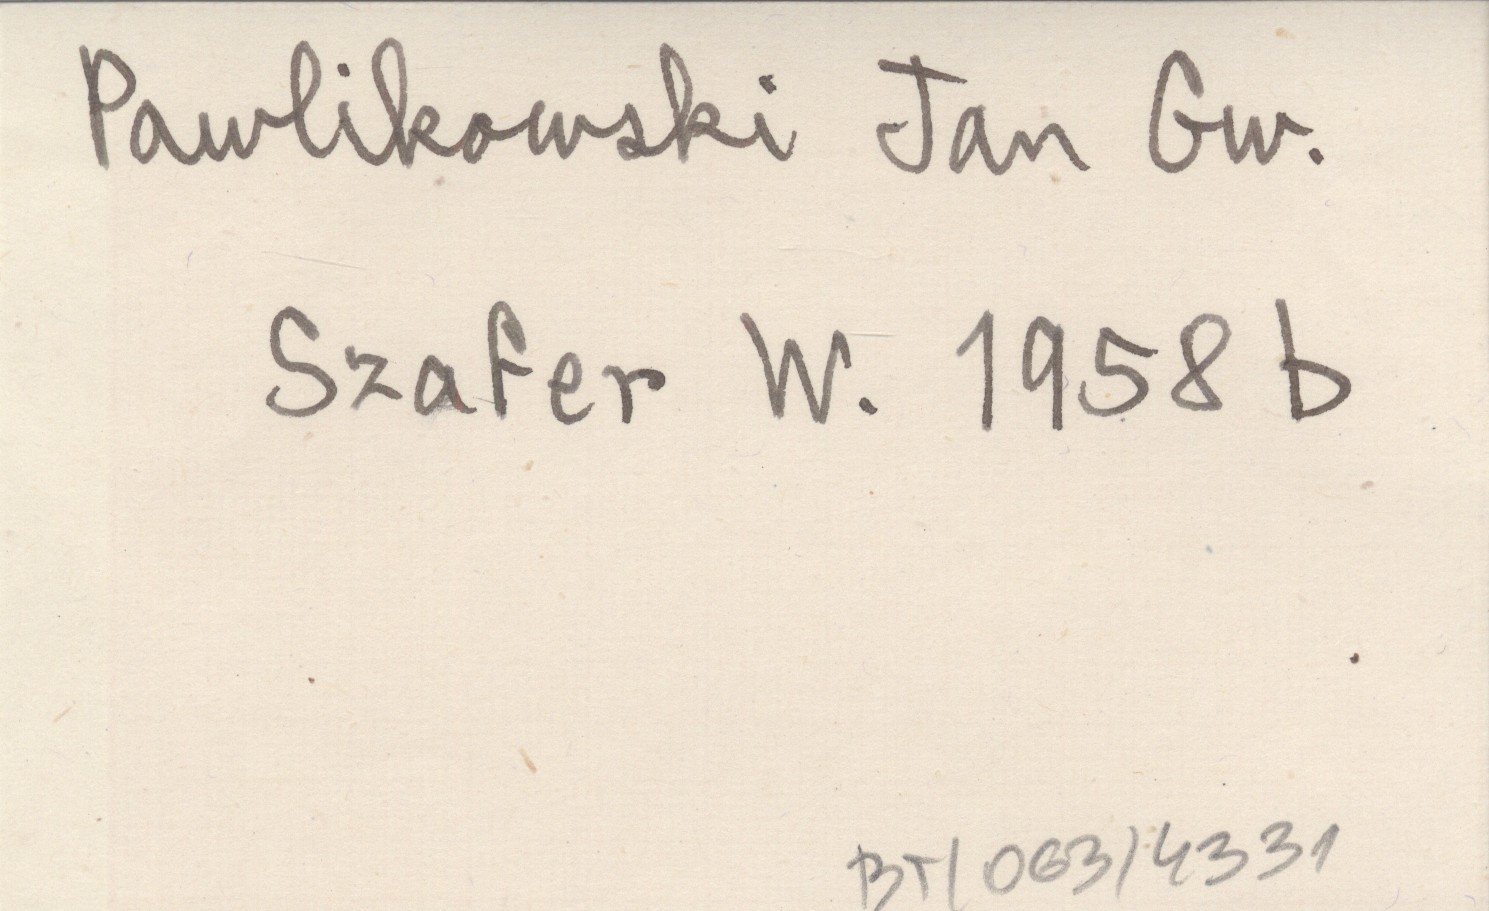 Pawlikowski Jan Gw.
Szafer W. 1958 b
BT/063/4331